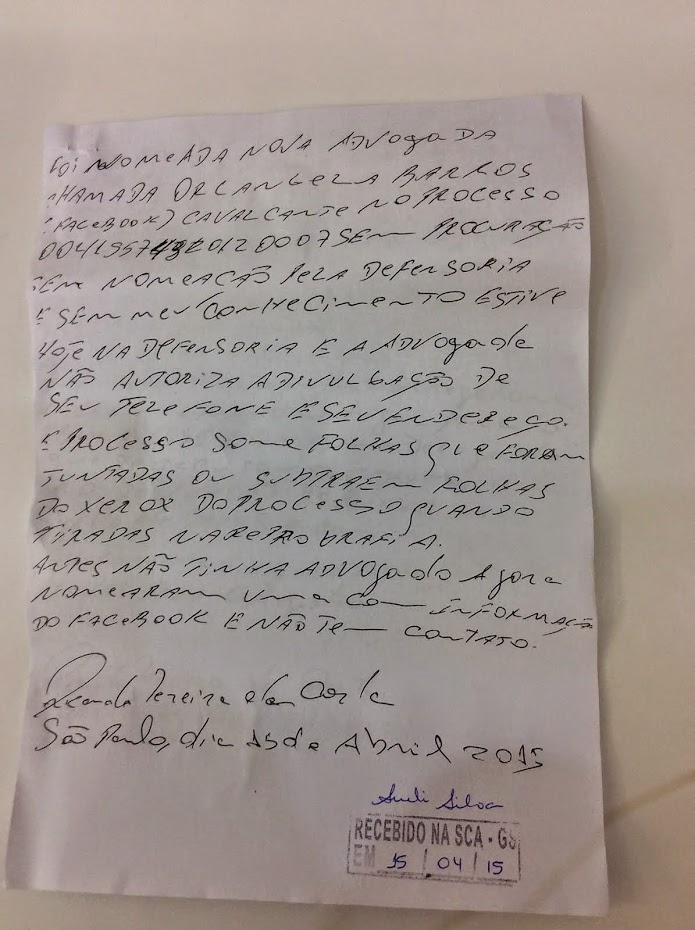 FOI NOMEADA NOVA ADVOGADA
CHAMADA ORLANGELA BARROS
(FACEBOOK) CAVALCANTE NO PROCESSO
SEM PROCURAÇÃO
SEM NOMEAÇÃO PELA DEFENSORIA
E SEM MEU CONHECIMENTO ESTIVE
HOJE NA DEFENSORIA E A ADVOGADA
NÃO AUTORIZA A DIVULGAÇÃO DE
SEU TELEFONE E SEU ENDEREÇO.
E PROCESSO SOME FOLHAS QUE FORAM
JUNTADAS OU SUBTRAEM FOLHAS
DO XEROX DO PROCESSO QUANDO
TIRADAS NA REPROGRAFIA.
ANTES NÃO TINHA ADVOGADO AGORA
NOMEARAM UMA COM INFORMAÇÃO
DO FACEBOOK E NÃO TEM CONTATO.
Pereira da Costa
São Paulo, dia 15 de Abril 2015
Sueli Silva
RECEBIDO NA SCA - GS
EM 15 / 04 / 15